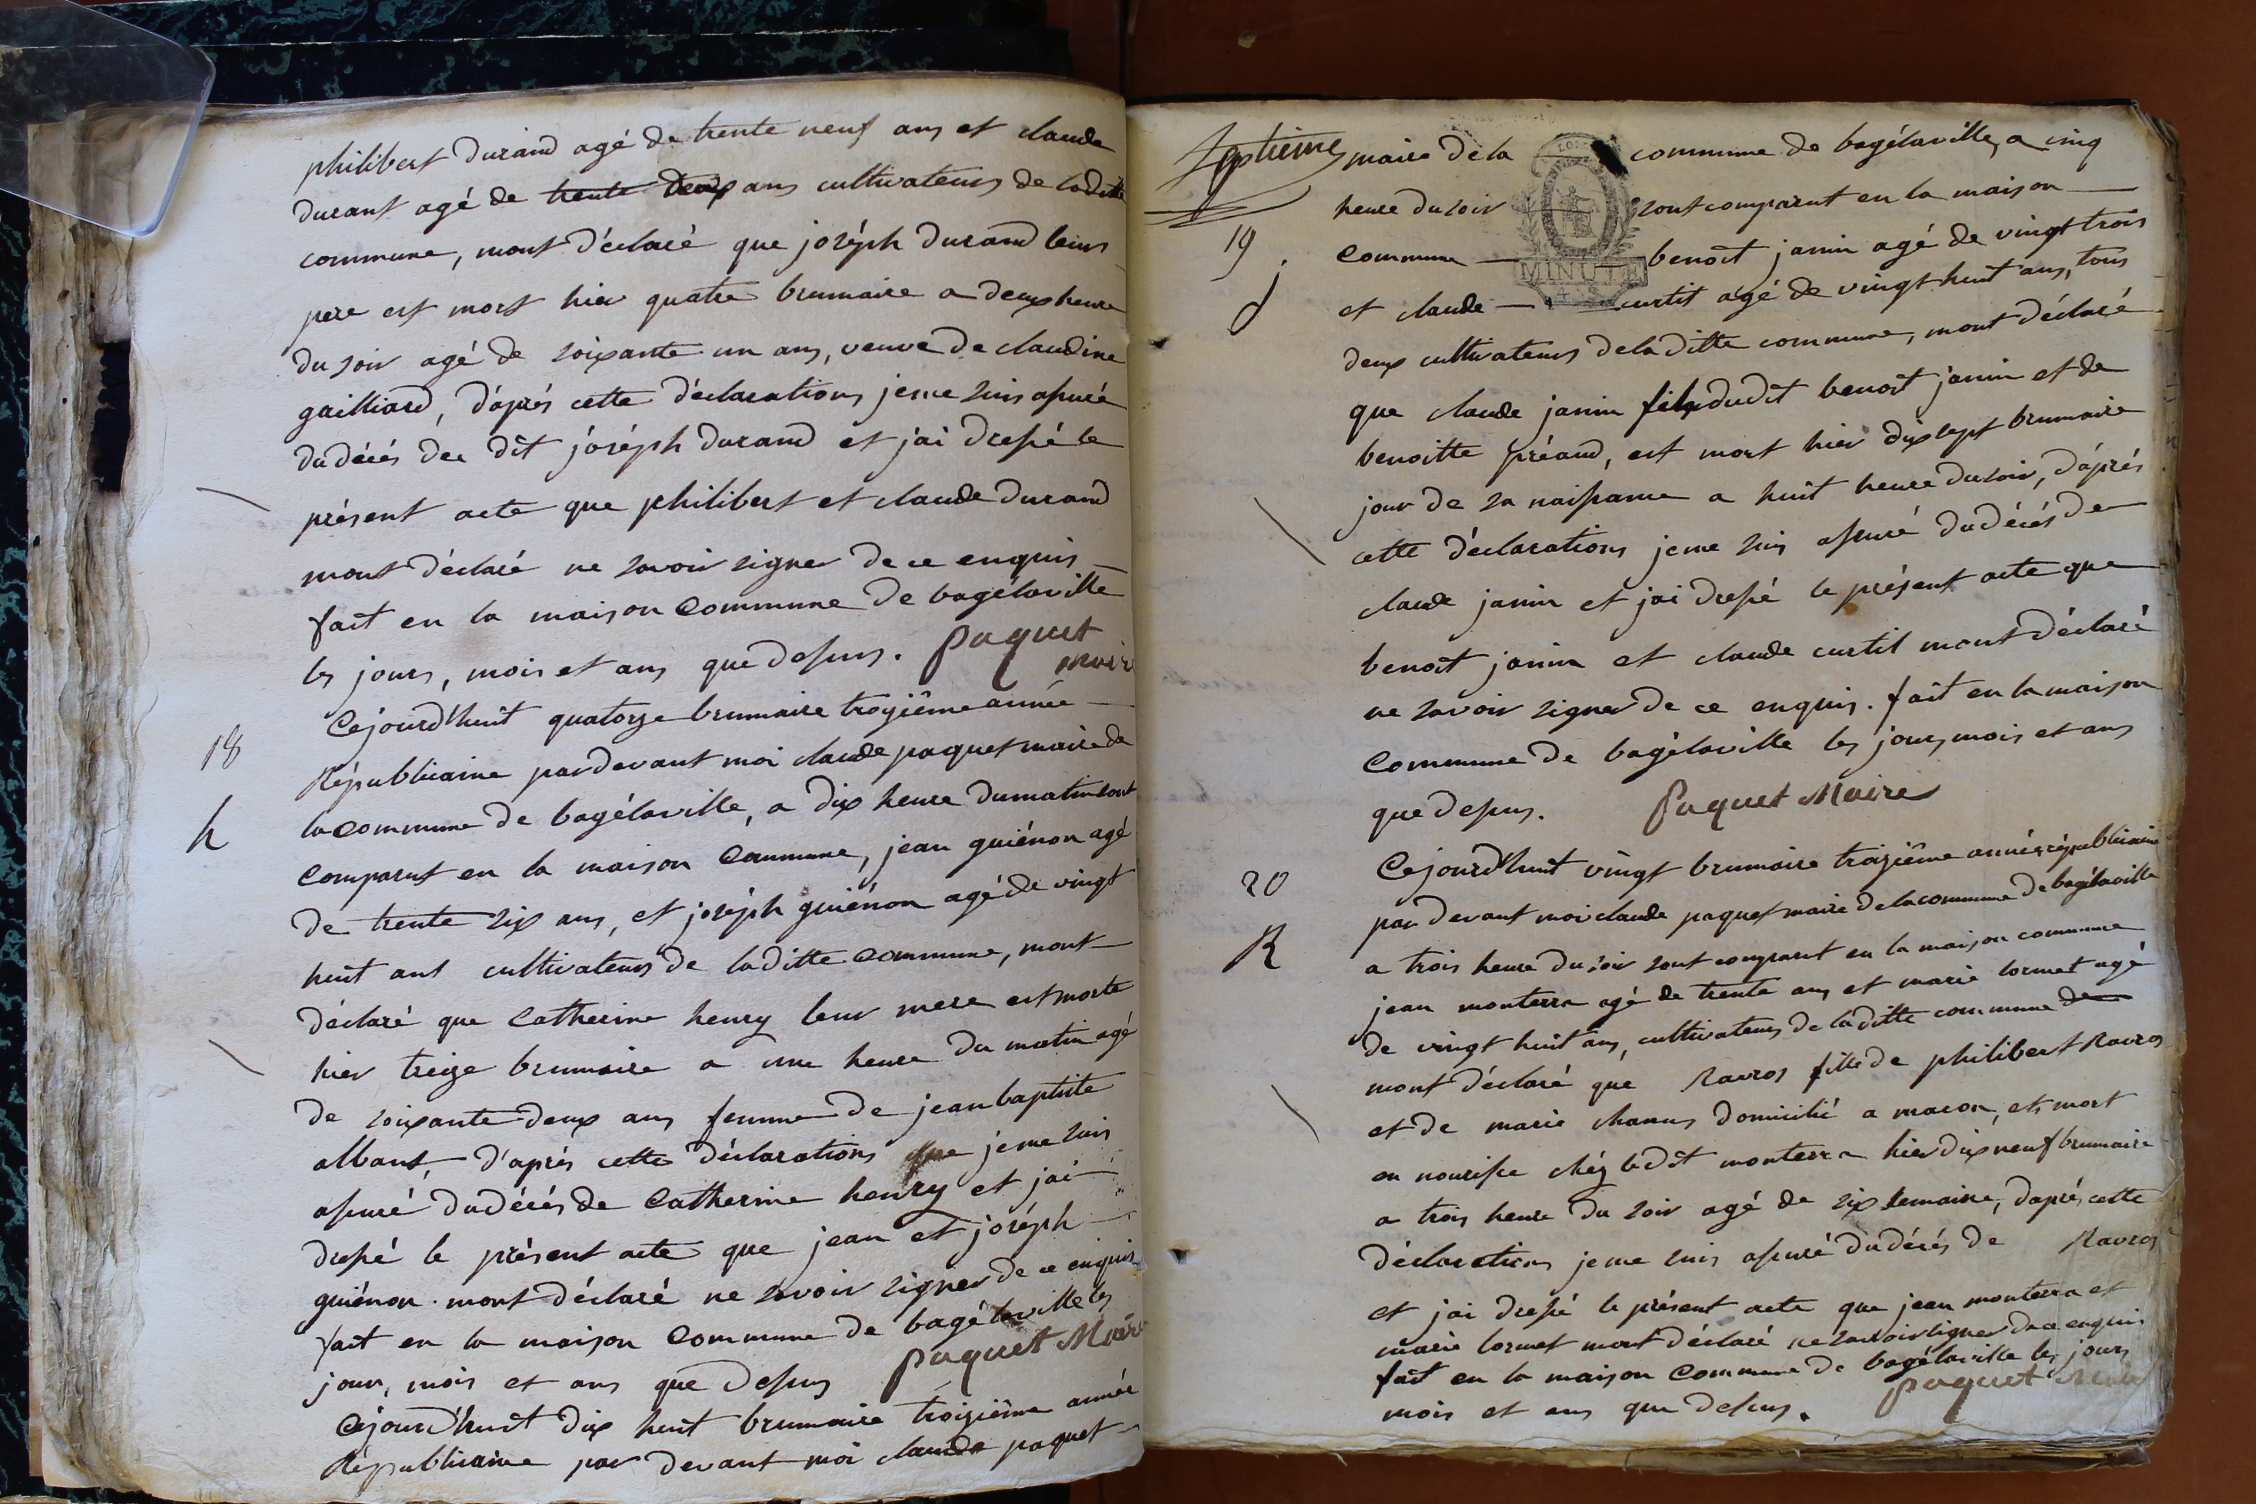 philibert durand agé de trente neuf ans et claude
durant agé de trente deux ans cultivateurs de laditte
commune, mont déclaré que joséph durand leurs
pere est mort hier quatre brumaire a deux heure
du soir agé de soixante un ans, veuve de claudine
gailliard, d'aprés cette déclarations je me suis assuré
du décés du dit joséph durand et jai dressé le
présent acte que philibert et claude durand
mont déclaré ne savoir signer de ce enquis
fait en la maison commune de bagélaville
les jours, mois et ans que dessus. paquet
maire
18
Cejourd'huit quatorze brumaire troisiême année
Républicaine pardevant moi claude paquet maire de
la commune de bagélaville, a dix heure du matin sont
h
comparut en la maison Commune, jean guiénon agé
de trente six ans, et joséph guiénon agé de vingt
huit ans cultivateurs de laditte commune, mont
déclaré que Catherine henry leur mere est morte
hier treize brumaire a une heure du matin agé
de soixante deux ans femme de jean baptiste
alban, d'aprés cette déclarations je me suis
assuré du décés de Catherine henry et jai
dressé le présent acte que jean et joséph
guiénon mont déclaré ne savoir signer de ce enquis
fait en la maison Commune de bagélaville les
jour, mois et ans que dessus paquet Maire
Cejourd'huit dix huit brumaire troisiême année
Républicaine par devant moi claude paquet
Septieme
maire de la commune de bagélaville, a cinq
heure du soir sont comparut en la maison
19
commune benoit janin agé de vingt trois
MINUTE
et claude curtil agé de vingt huit ans, tous
d
deux cultivateurs de laditte commune, mont déclaré
que claude janin fils dudit benoit janin et de
benoitte préaud, est mort hier dix sept brumaire
jour de sa naissance a huit heure du soir, d'aprés
cette déclarations je me suis assuré du décés de
claude janin et jai dressé le présent acte que
benoit janin et claude curtil mont déclaré
ne savoir signer de ce enquis. fait en la maison
Commune de bagélaville les jours, mois et ans
que dessus. Paquet Maire
Cejourd'huit vingt brumaire troisiême année républicaine
20
par devant moi claude paquet maire de la commune de bagélaville
a trois heure du soir sont comparut en la maison commune
R
jean monterra agé de trente ans et marie lormet agé
de vingt huit ans, cultivateurs de laditte commune de
mont déclaré que Ravros fille de philibert Ravros
et de marie chanus domicilié a macon, est mort
en nourisse chéz le dit monterra hier dix neuf brumaire
a trois heure du soir agé de six semaine, d'aprés cette
déclarations je me suis assuré du décés de Ravros
et jai dressé le présent acte que jean monterra et
marie lormet mont déclaré ne savoir signer de ce enquis
fait en la maison commune de bagélaville les jours
mois et ans que dessus. paquet Maire